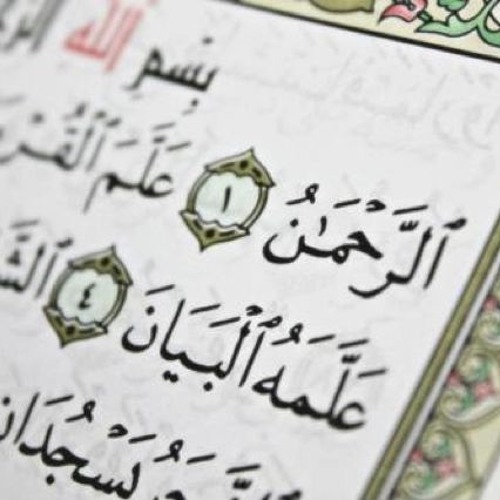 بِسْمِ ٱللَّهِ
ٱلرَّحْمَـٰنُ ١ عَلَّمَ ٱلْقُرْ
عَلَّمَهُ ٱلْبَيَانَ ٤ ٱلشَّ
يَسْجُدَانِ